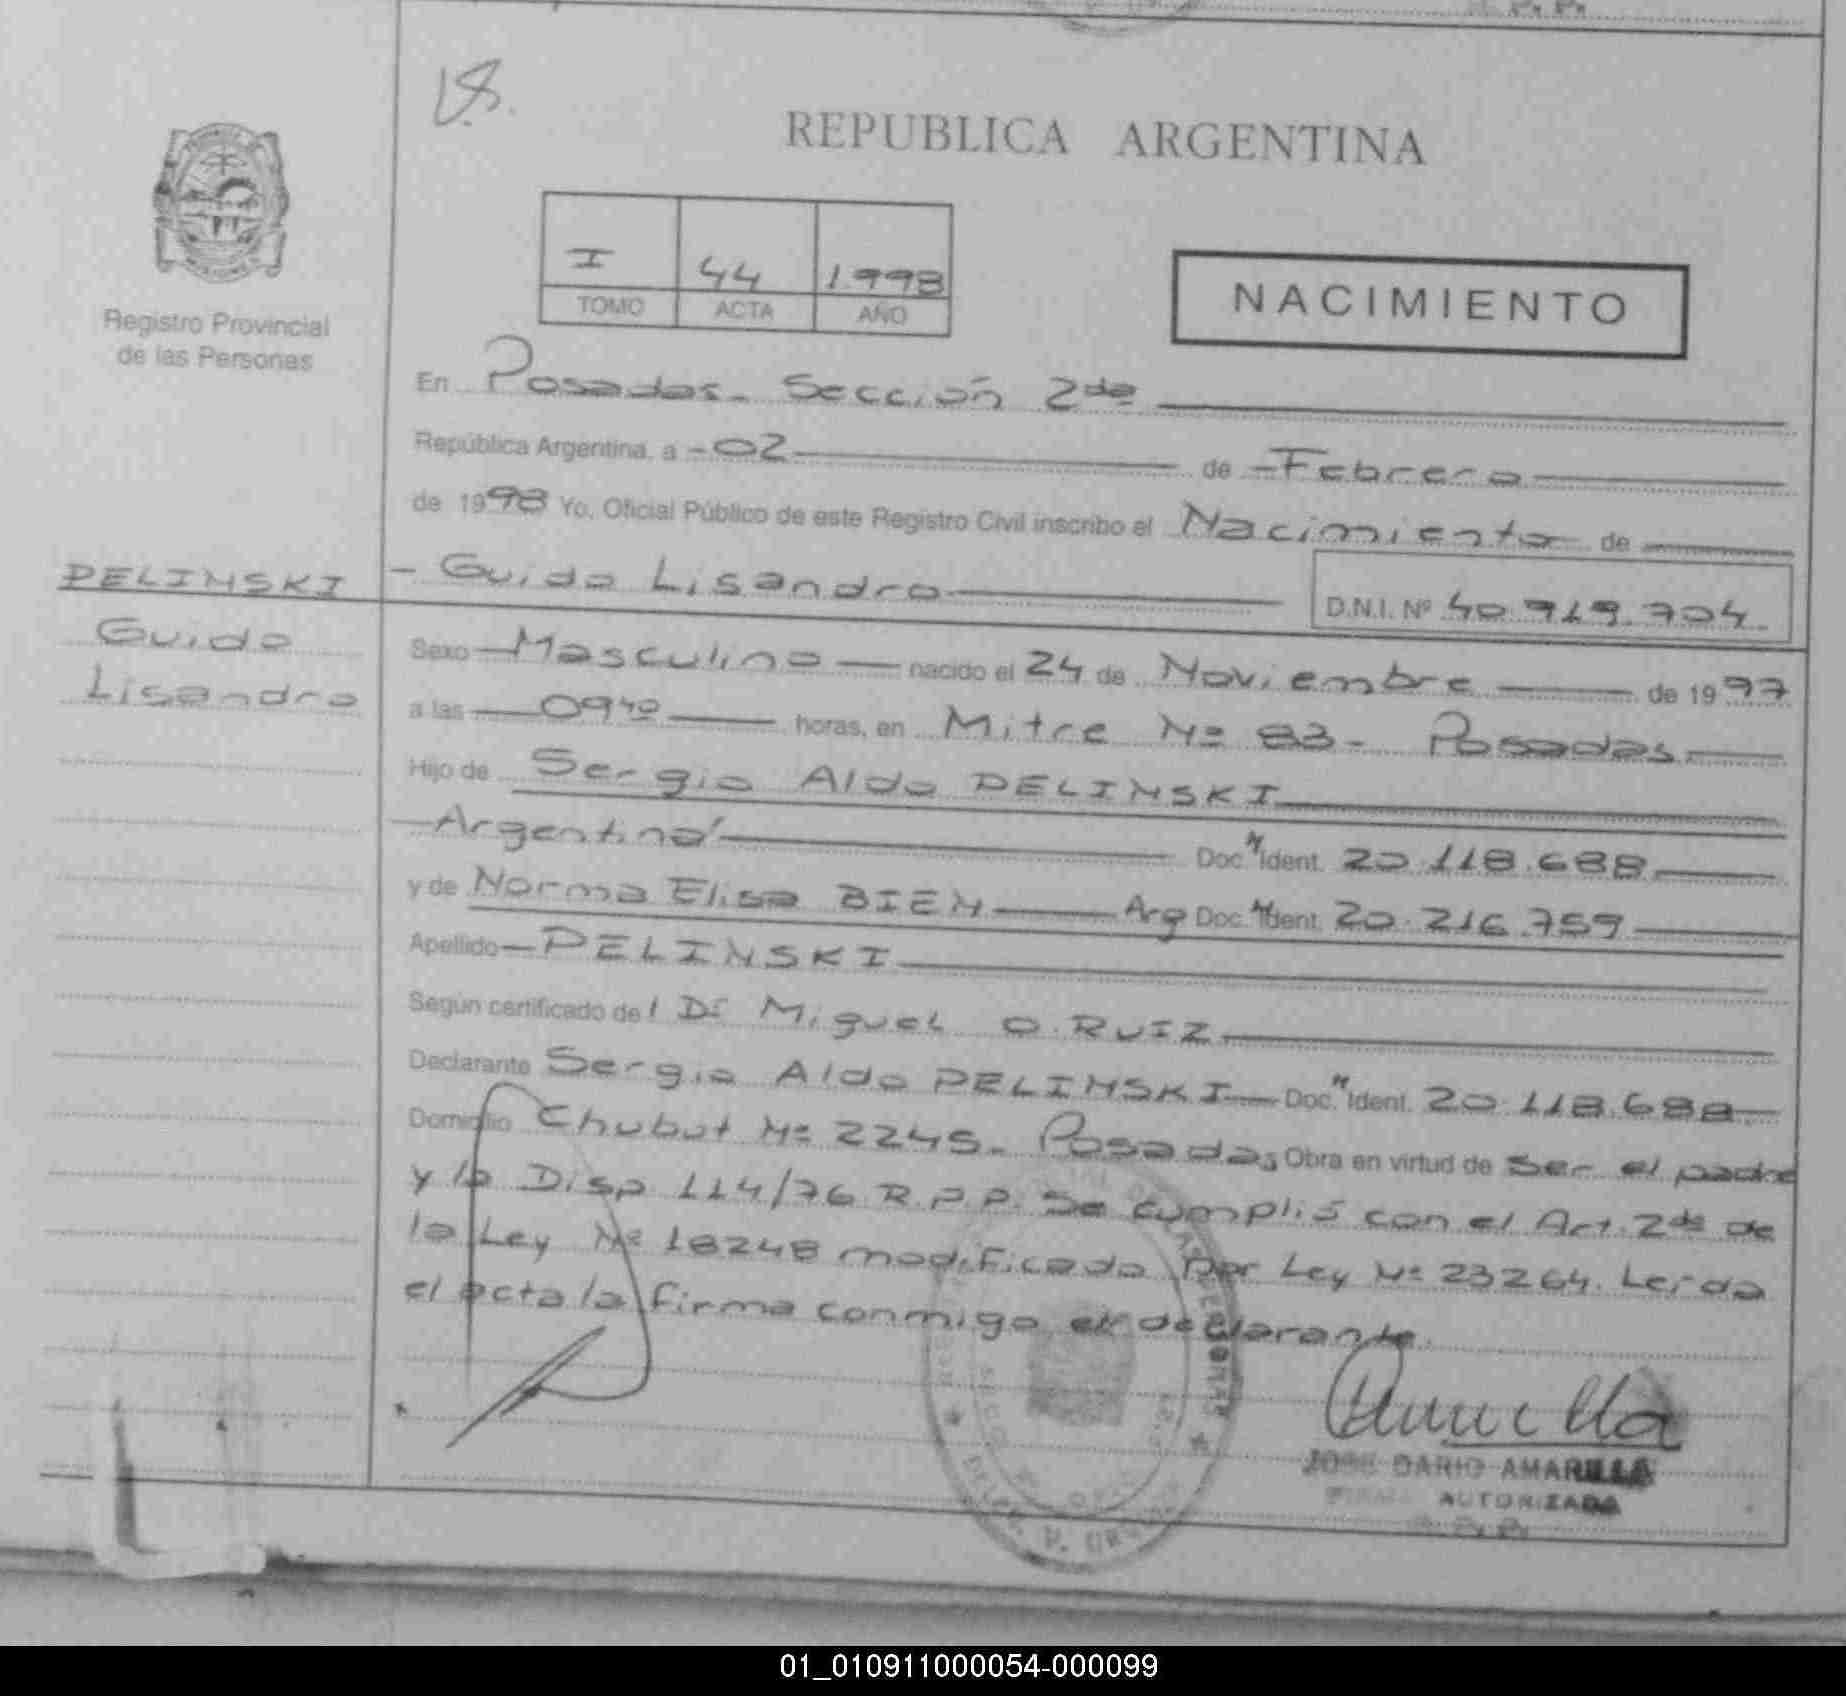 REPUBLICA ARGENTINA
I 44 1.998
TOMO ACTA AÑO
NACIMIENTO
Registro Provincial
de las Personas
En Posadas - Sección 2da
República Argentina, a - 02 de - Febrero
de 1998 Yo, Oficial Público de este Registro Civil inscribo el Nacimiento de
- Guido Lisandro D.N.I. Nº 40.919.704.
PELINSKI
Guido
Lisandro
Sexo Masculino nacido el 24 de Noviembre de 1997
a las 09 40 horas, en Mitre Nº 83 - Posadas
Hijo de Sergio Aldo PELINSKI
Argentino Doc. N Ident. 20.118.688
y de Norma Elisa BIEN Arg Doc. N Ident. 20.216.759
Apellido PELINSKI
Según certificado de l Dr Miguel O. RUIZ
Declarante Sergio Aldo PELINSKI Doc. N Ident. 20.118.688
Domicilio Chubut Nº 2245 - Posadas Obra en virtud de ser el padre
y la Disp 114/76 R.P.P. Se cumplió con el Art. 2do de
la Ley Nº 18248 modificado por Ley Nº 23264. Leida
el acta la firma conmigo el declarante.
JOSE DARIO AMARILLA
FIRMA AUTORIZADA
01_010911000054-000099